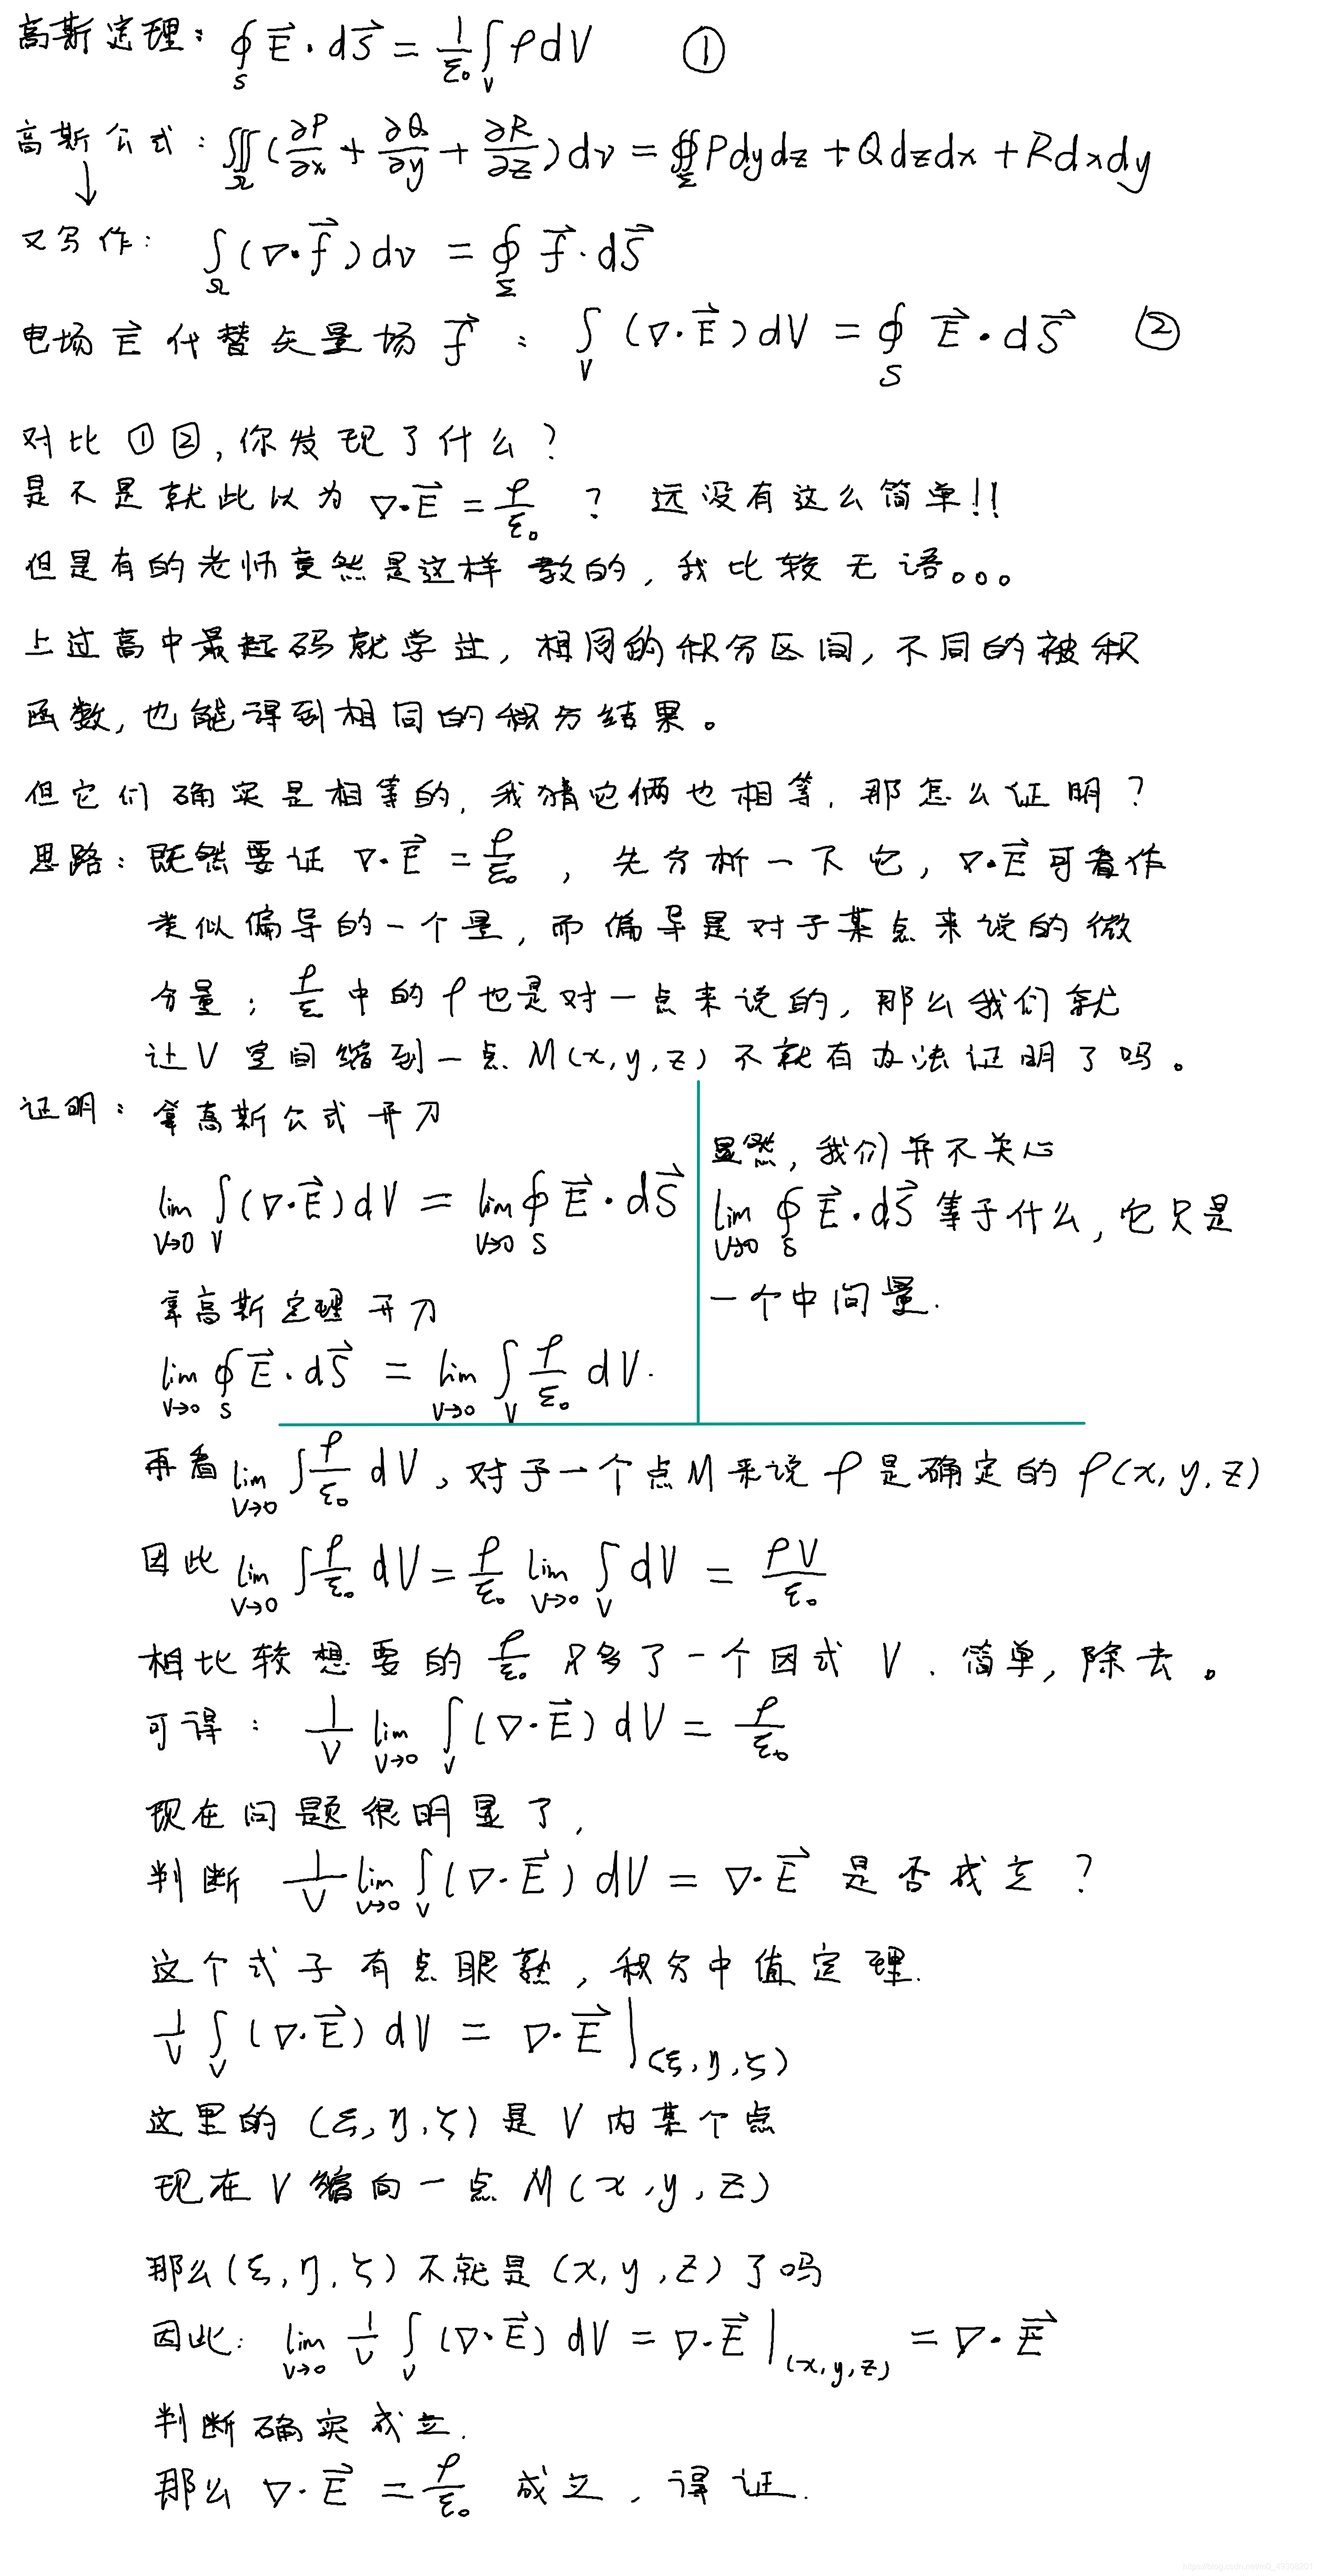 高斯定理: ∮_S E⃗·dS⃗ = 1/ε₀ ∫_V ρdV ①
高斯公式: ∭_Ω (∂P/∂x + ∂Q/∂y + ∂R/∂z)dv = ∯_Σ Pdydz + Qdzdx + Rdxdy
↓
又写作: ∫_Ω (∇·f⃗)dv = ∮_Σ f⃗·dS⃗
电场 E⃗ 代替矢量场 f⃗ : ∫_V (∇·E⃗)dV = ∮_S E⃗·dS⃗ ②
对比①②,你发现了什么?
是不是就此以为 ∇·E⃗ = ρ/ε₀ ? 远没有这么简单!!
但是有的老师竟然是这样教的,我比较无语。。。
上过高中最起码就学过,相同的积分区间,不同的被积
函数,也能得到相同的积分结果。
但它们确实是相等的,我猜它俩也相等,那怎么证明?
思路: 既然要证 ∇·E⃗ = ρ/ε₀ , 先分析一下它, ∇·E⃗ 可看作
类似偏导的一个量,而偏导是对于某点来说的微
分量; ρ/ε 中的 ρ 也是对一点来说的,那么我们就
让 V 空间缩到一点 M(x,y,z) 不就有办法证明了吗。
证明: 拿高斯公式开刀
lim_{V→0} ∫_V (∇·E⃗)dV = lim_{V→0} ∮_S E⃗·dS⃗
拿高斯定理开刀
lim_{V→0} ∮_S E⃗·dS⃗ = lim_{V→0} ∫_V ρ/ε₀ dV.
显然,我们并不关心
lim_{V→0} ∮_S E⃗·dS⃗ 等于什么,它只是
一个中间量.
再看 lim_{V→0} ∫ρ/ε₀ dV,对于一个点M来说 ρ 是确定的 ρ(x,y,z)
因此 lim_{V→0} ∫ρ/ε₀ dV = ρ/ε₀ lim_{V→0} ∫_V dV = ρV/ε₀
相比较想要的 ρ/ε₀ 只多了一个因式 V. 简单,除去。
可得: 1/V lim_{V→0} ∫_V (∇·E⃗)dV = ρ/ε₀
现在问题很明显了,
判断 1/V lim_{V→0} ∫_V (∇·E⃗)dV = ∇·E⃗ 是否成立?
这个式子有点眼熟,积分中值定理.
1/V ∫_V (∇·E⃗)dV = ∇·E⃗ |_(ξ,η,ζ)
这里的 (ξ,η,ζ) 是 V 内某个点
现在 V 缩向一点 M(x,y,z)
那么(ξ,η,ζ)不就是(x,y,z)了吗
因此: lim_{V→0} 1/V ∫_V (∇·E⃗)dV = ∇·E⃗ |_(x,y,z) = ∇·E⃗
判断确实成立.
那么 ∇·E⃗ = ρ/ε₀ 成立,得证.